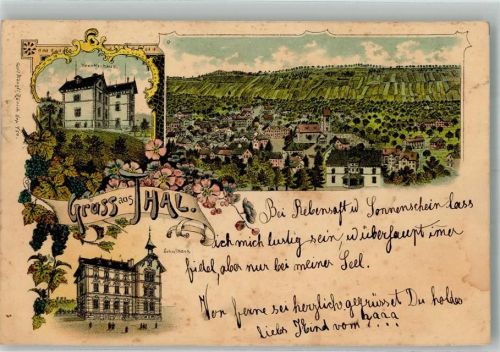 Krankenhaus.
Gruss aus THAL.
Schulhaus
Bei Rebensaft u. Sonnenschein lass
ich mich lustig sein, u überhaupt imer
fidel, aber nur bei meiner Seel.
Von ferne sei herzlich gegrüsset Du holdes
liebs Kind vom